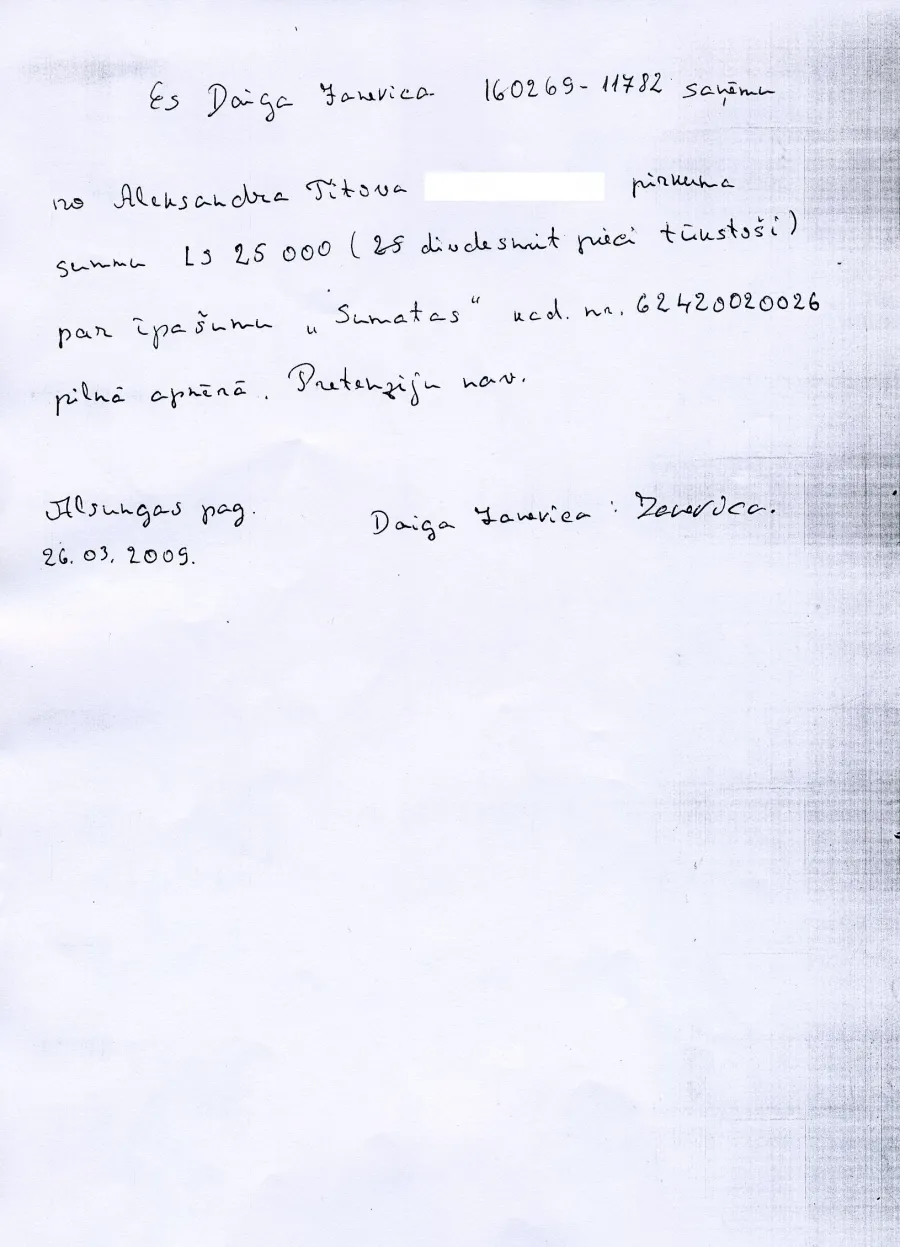 Es Daiga Janevica 160269-11782 saņēmu
no Aleksandra Titova pirkuma
summu Ls 25 000 (25 divdesmit pieci tūkstoši)
par īpašumu „Sumatas“ kad. nr. 62420020026
pilnā apmērā. Pretenziju nav.
Alsungas pag. Daiga Janevica : Janevica.
26.03.2009.